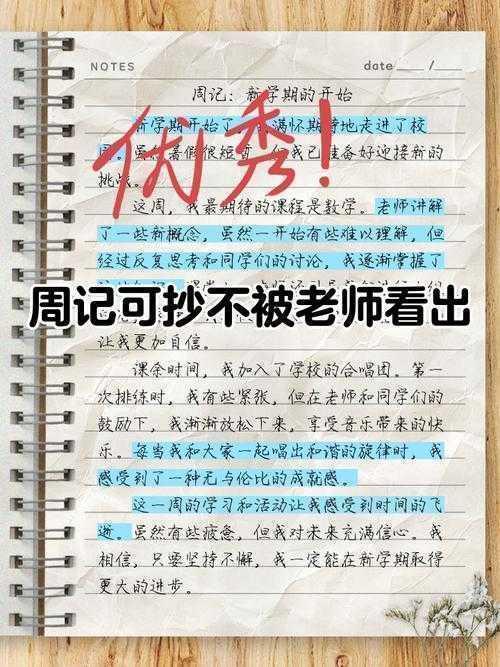 NOTES
date /
周记：新学期的开始
新学期开始了 满怀期待地走进了校
优秀！
园。虽然暑假很短暂 我已准备好迎接新的
挑战。
这周，我最期待的课程是数学。老师讲解
了一些新概念，虽然一开始有些难以理解，但
经过反复思考和同学们的讨论，我逐渐掌握了
周记可抄不被老师看出
让我更加自信。
课余时间，我加入了学校的合唱团。第一
次排练时，我有些紧张，但在老师和同学们的
鼓励下，我渐渐放松下来，享受音乐带来的快
乐。每当我和大家一起唱出和谐的旋律时，我
感受到了一种无与伦比的成就感。
这一周的学习和活动让我感受到时间的飞
逝。虽然有些疲惫，但我对未来充满信心。我
相信，只要坚持不懈，我一定能在新学期取得
更大的进步。